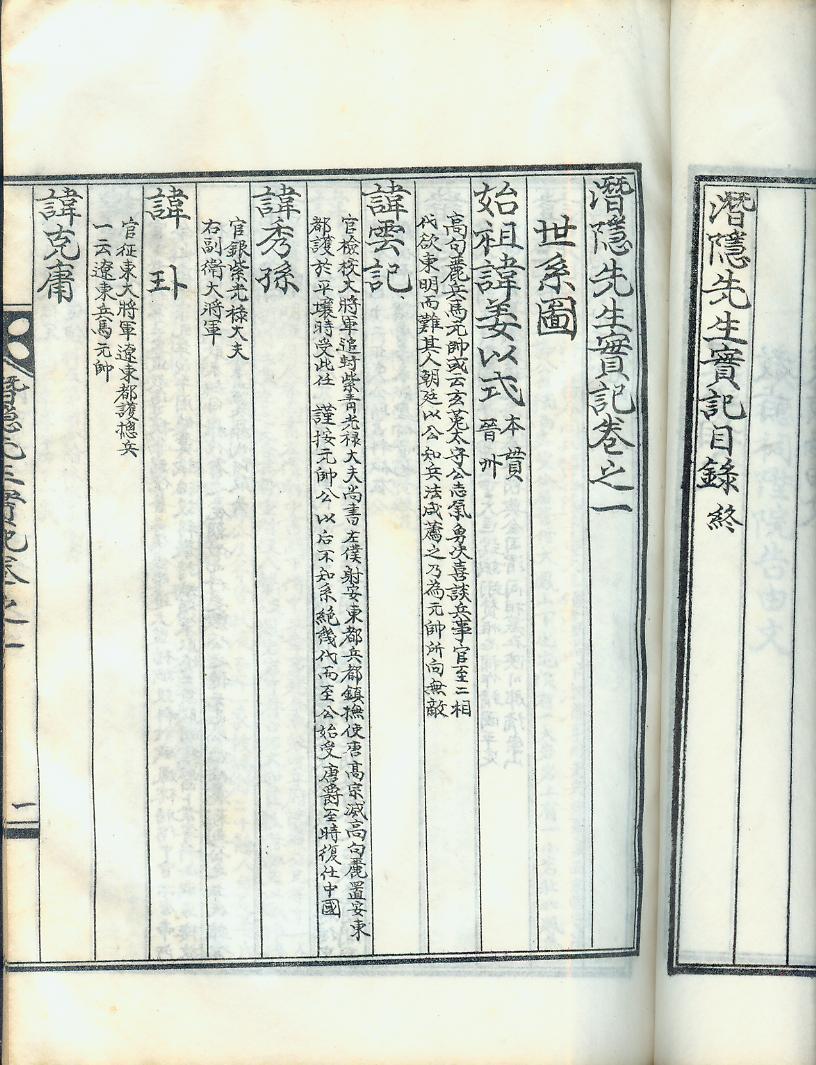 潛隱先生實記目錄 終
潛隱先生實記卷之一
世系圖
始祖諱姜以式 本貫
晉州
高句麗兵馬元帥或云玄菟太守公志氣勇決喜談兵事官至二相
代欲東明而難其人朝廷以公知兵法咸薦之乃為元帥所向無敵
諱雲記
官檢校大將軍追封紫靑光祿大夫尚書左僕射安東都兵都鎮撫使唐高宗滅高句麗置安東
都護於平壤時受此任 謹按元帥公以后不知系絶幾代而至公始受唐爵至時復仕中國
諱秀孫
官銀紫光祿大夫
右副衛大將軍
諱
官征東大將軍遼東都護摠兵
一云遼東兵馬元帥
諱克庸
潛隱先生實記卷之一
一